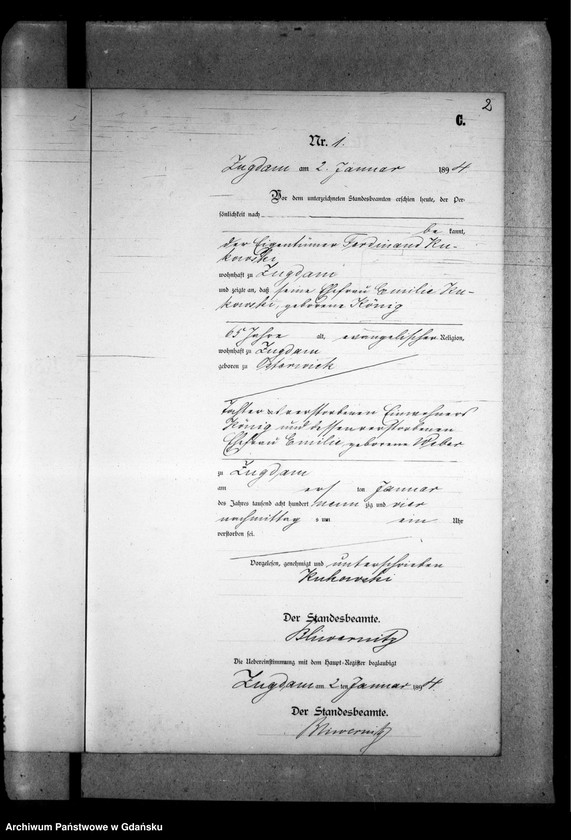 2
C.
Nr. 1.
Zugdam am 2. Januar 1894
Vor dem unterzeichneten Standesbeamten erschien heute, der Per-
sönlichkeit nach
be kannt,
der Eigentümer Ferdinand Ku-
kowski,
wohnhaft zu Zugdam
und zeigte an, daß seine Ehefrau Emilie Ku-
kowski, geborene König
65 Jahre alt, evangelischer Religion,
wohnhaft zu Zugdam
geboren zu Osterwick
Tochter des verstorbenen Einwohners
König und dessen verstorbenen
Ehefrau Emilie geborene Weber
zu Zugdam
am ersten Januar
des Jahres tausend acht hundert neunzig und vier
nachmittag s um ein Uhr
verstorben sei.
Vorgelesen, genehmigt und unterschrieben
Kukowski
Der Standesbeamte.
Die Uebereinstimmung mit dem Haupt-Register beglaubigt
Zugdam am 2 ten Januar 1894.
Der Standesbeamte.
Archiwum Państwowe w Gdańsku